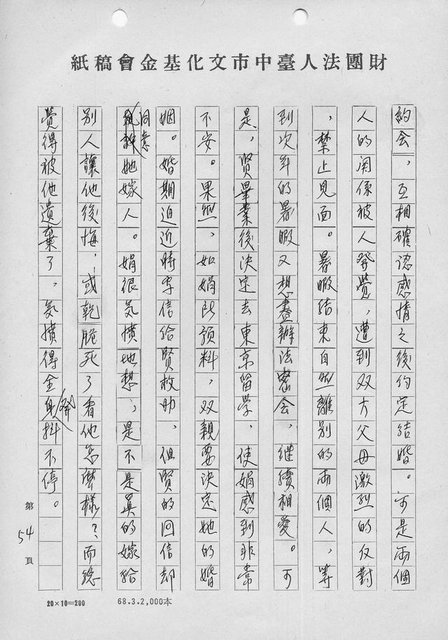 財團法人臺中市文化基金會稿紙
約会，互相確認感情之後約定結婚。可是兩個
人的関係被人發覺，遭到双方父母激烈的反對
，禁止見面。暑暇結束自然離別的兩個人，等
到次年的暑暇又想盡辦法密会，继續相愛。可
是，賢畢業後決定去東京留學，使娟感到非常
不安。果然，如娟所預料，双親要決定她的婚
姻。婚期迫近時寄信給賢救助，但賢的回信却
同意她嫁人。娟很気憤地想；是不是真的嫁給
別人讓他後悔，或乾脆死了看他怎麼樣？而総
覺得被他遺棄了，気憤得全身發抖不停。
第54頁
20×10=200 68.3.2,000本